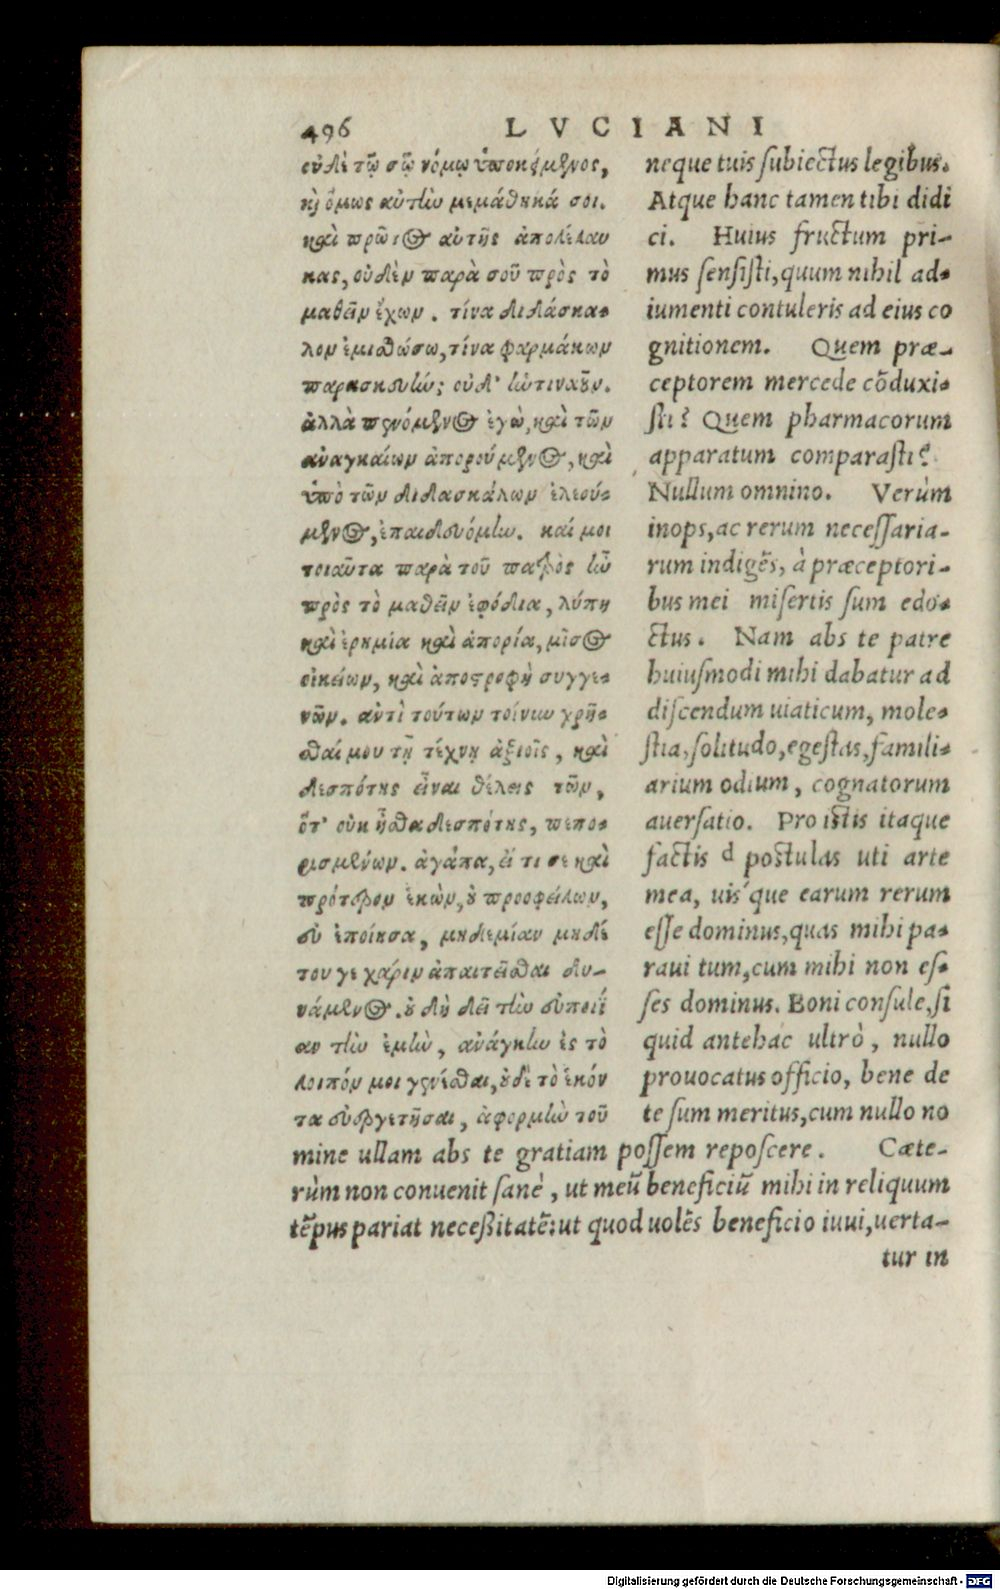 496 LVCIANI
οὐδὲ τῷ σῷ νόμῳ ὑποκείμενος,
κὶ ὅμως αὐτὴν μεμάθηκά σοι.
καὶ πρῶτος αὐτῆς ἀπολέλαυ
κας, οὐδὲν παρὰ σοῦ πρὸς τὸ
μαθεῖν ἔχων. τίνα διδάσκα-
λον ἐμισθώσω, τίνα φαρμάκων
παρασκευὴν; οὐδ' ἡντιναοῦν.
ἀλλὰ πενόμενος ἐγὼ, καὶ τῶν
ἀναγκαίων ἀπορούμενος, καὶ
ὑπὸ τῶν διδασκάλων ἐλεού-
μενος, ἐπαιδευόμην. καί μοι
τοιαῦτα παρὰ τοῦ πατρὸς ἦν
πρὸς τὸ μαθεῖν ἐφόδια, λύπη
καὶ ἐρημία καὶ ἀπορία, μῖσος
οἰκείων, καὶ ἀποστροφὴ συγγε-
νῶν. ἀντὶ τούτων τοίνυν χρῆ-
σθαί μου τῇ τέχνῃ ἀξιοῖς, καὶ
δεσπότης εἶναι θέλεις τῶν,
ὅτ' οὐκ ἦσθα δεσπότης, πεπο-
ρισμένων. ἀγάπα, εἴ τι σε καὶ
πρότερον ἑκὼν, οὐ προοφείλων,
εὖ ἐποίησα, μηδεμίαν μηδέ
του γε χάριν ἀπαιτεῖσθαι δυ-
νάμενος. οὐ δὴ δεῖ τὴν εὐποιΐ
αν τὴν ἐμὴν, ἀνάγκην ἐς τὸ
λοιπόν μοι γενέσθαι, οὐδὲ τὸ ἑκόν
τα εὐεργετῆσαι, ἀφορμὴν τοῦ
neque tuis subiectus legibus.
Atque hanc tamen tibi didi
ci. Huius fructum pri-
mus sensisti, quum nihil ad-
iumenti contuleris ad eius co
gnitionem. Quem præ-
ceptorem mercede cõduxi-
sti? Quem pharmacorum
apparatum comparasti?
Nullum omnino. Verùm
inops, ac rerum necessaria-
rum indigẽs, à præceptori-
bus mei misertis sum edo-
ctus. Nam abs te patre
huiusmodi mihi dabatur ad
discendum uiaticum, mole-
stia, solitudo, egestas, famili-
arium odium, cognatorum
auersatio. Pro istis itaque
factis d postulas uti arte
mea, uis'que earum rerum
esse dominus, quas mihi pa-
raui tum, cum mihi non es-
ses dominus. Boni consule, si
quid antehac ultrò, nullo
prouocatus officio, bene de
te sum meritus, cum nullo no
mine ullam abs te gratiam possem reposcere. Cæte-
rùm non conuenit sanè, ut meũ beneficiũ mihi in reliquum
tẽpus pariat necessitatẽ: ut quod uolẽs beneficio iuui, uerta-
tur in
Digitalisierung gefördert durch die Deutsche Forschungsgemeinschaft - DFG